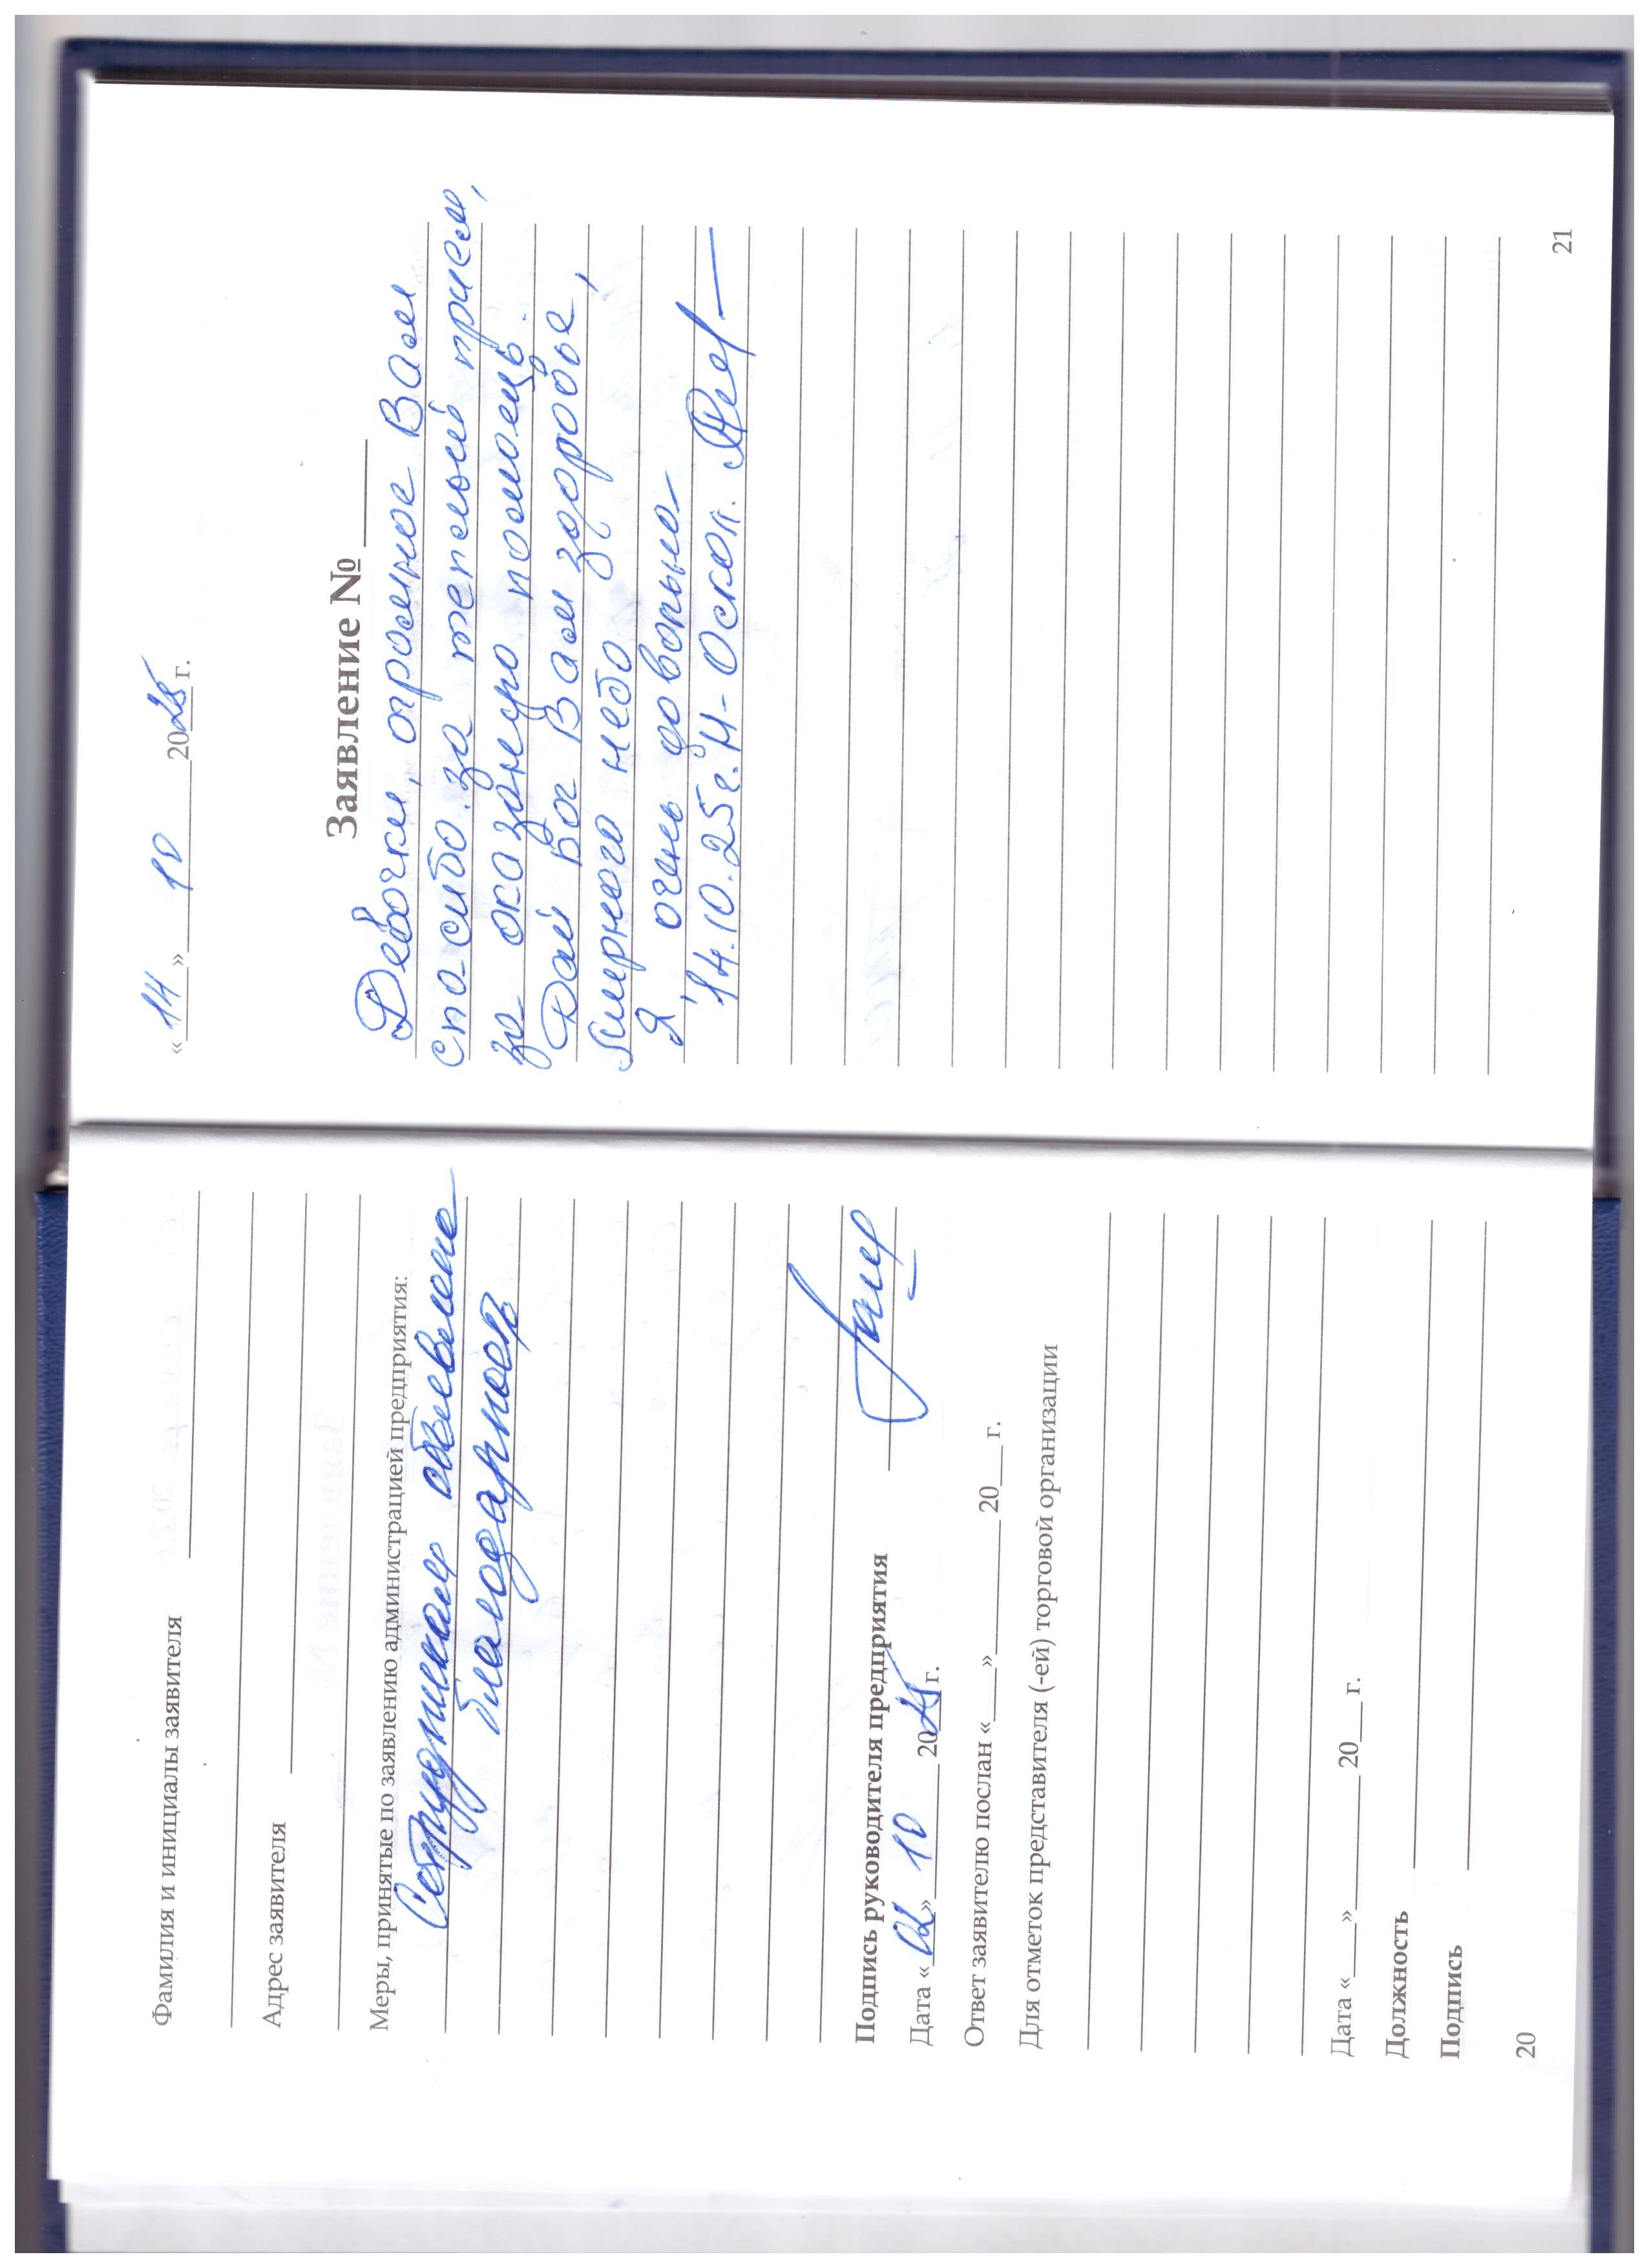 Фамилия и инициалы заявителя
Адрес заявителя
Меры, принятые по заявлению администрацией предприятия:
Сотрудникам объявлена
благодарность
Подпись руководителя предприятия
Дата « » 10 2025 г.
Ответ заявителю послан « » 20 г.
Для отметок представителя (-ей) торговой организации
Дата « » 20 г.
Должность
Подпись
20
« 14 » 10 2025 г.
Заявление №
Девочки, огромное Вам
спасибо за теплый прием,
за оказаную помощь.
Дай Бог Вам здоровье,
мирного небо,
Я очень довольна
14.10.25г. Н-Оскол.
21